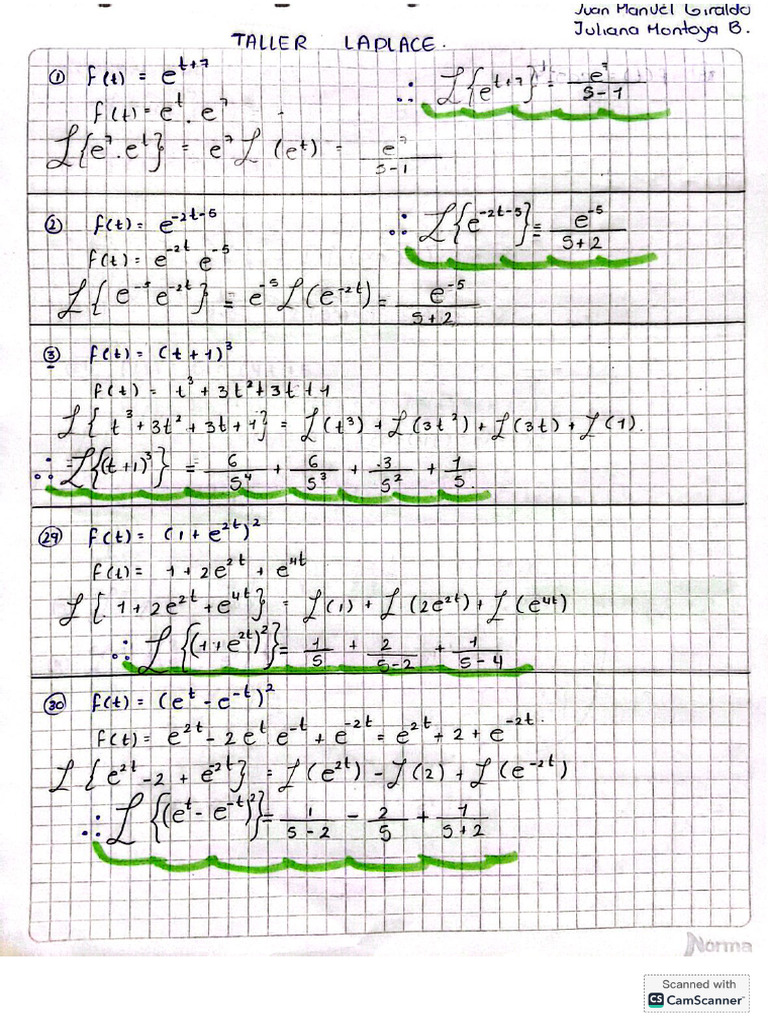 Juan Manuel Giraldo
Juliana Montoya B.
TALLER LAPLACE.
① f(t) = e^{t+7}
f(t) = e^t . e^7
ℒ{e^7 . e^t} = e^7 ℒ (e^t) = e^7/(s-1)
∴ ℒ{e^{t+7}} = e^7/(s-1)
② f(t) = e^{-2t-5}
f(t) = e^{-2t} e^{-5}
ℒ{e^{-5} e^{-2t}} = e^{-5} ℒ(e^{-2t}) = e^{-5}/(s+2)
∴ ℒ{e^{-2t-5}} = e^{-5}/(s+2)
③ f(t) = (t+1)^3
f(t) = t^3 + 3t^2 + 3t + 1
ℒ{t^3 + 3t^2 + 3t + 1} = ℒ(t^3) + ℒ(3t^2) + ℒ(3t) + ℒ(1).
∴ = ℒ{(t+1)^3} = 6/s^4 + 6/s^3 + 3/s^2 + 1/s.
㉙ f(t) = (1 + e^{2t})^2
f(t) = 1 + 2e^{2t} + e^{4t}
ℒ{1 + 2e^{2t} + e^{4t}} = ℒ(1) + ℒ(2e^{2t}) + ℒ(e^{4t})
∴ ℒ{(1+e^{2t})^2} = 1/s + 2/(s-2) + 1/(s-4)
㉚ f(t) = (e^t - e^{-t})^2
f(t) = e^{2t} - 2e^t e^{-t} + e^{-2t} = e^{2t} + 2 + e^{-2t}.
ℒ{e^{2t} - 2 + e^{-2t}} = ℒ(e^{2t}) - ℒ(2) + ℒ(e^{-2t})
∴ ℒ{(e^t - e^{-t})^2} = 1/(s-2) - 2/s + 1/(s+2)
Norma
Scanned with
CS CamScanner